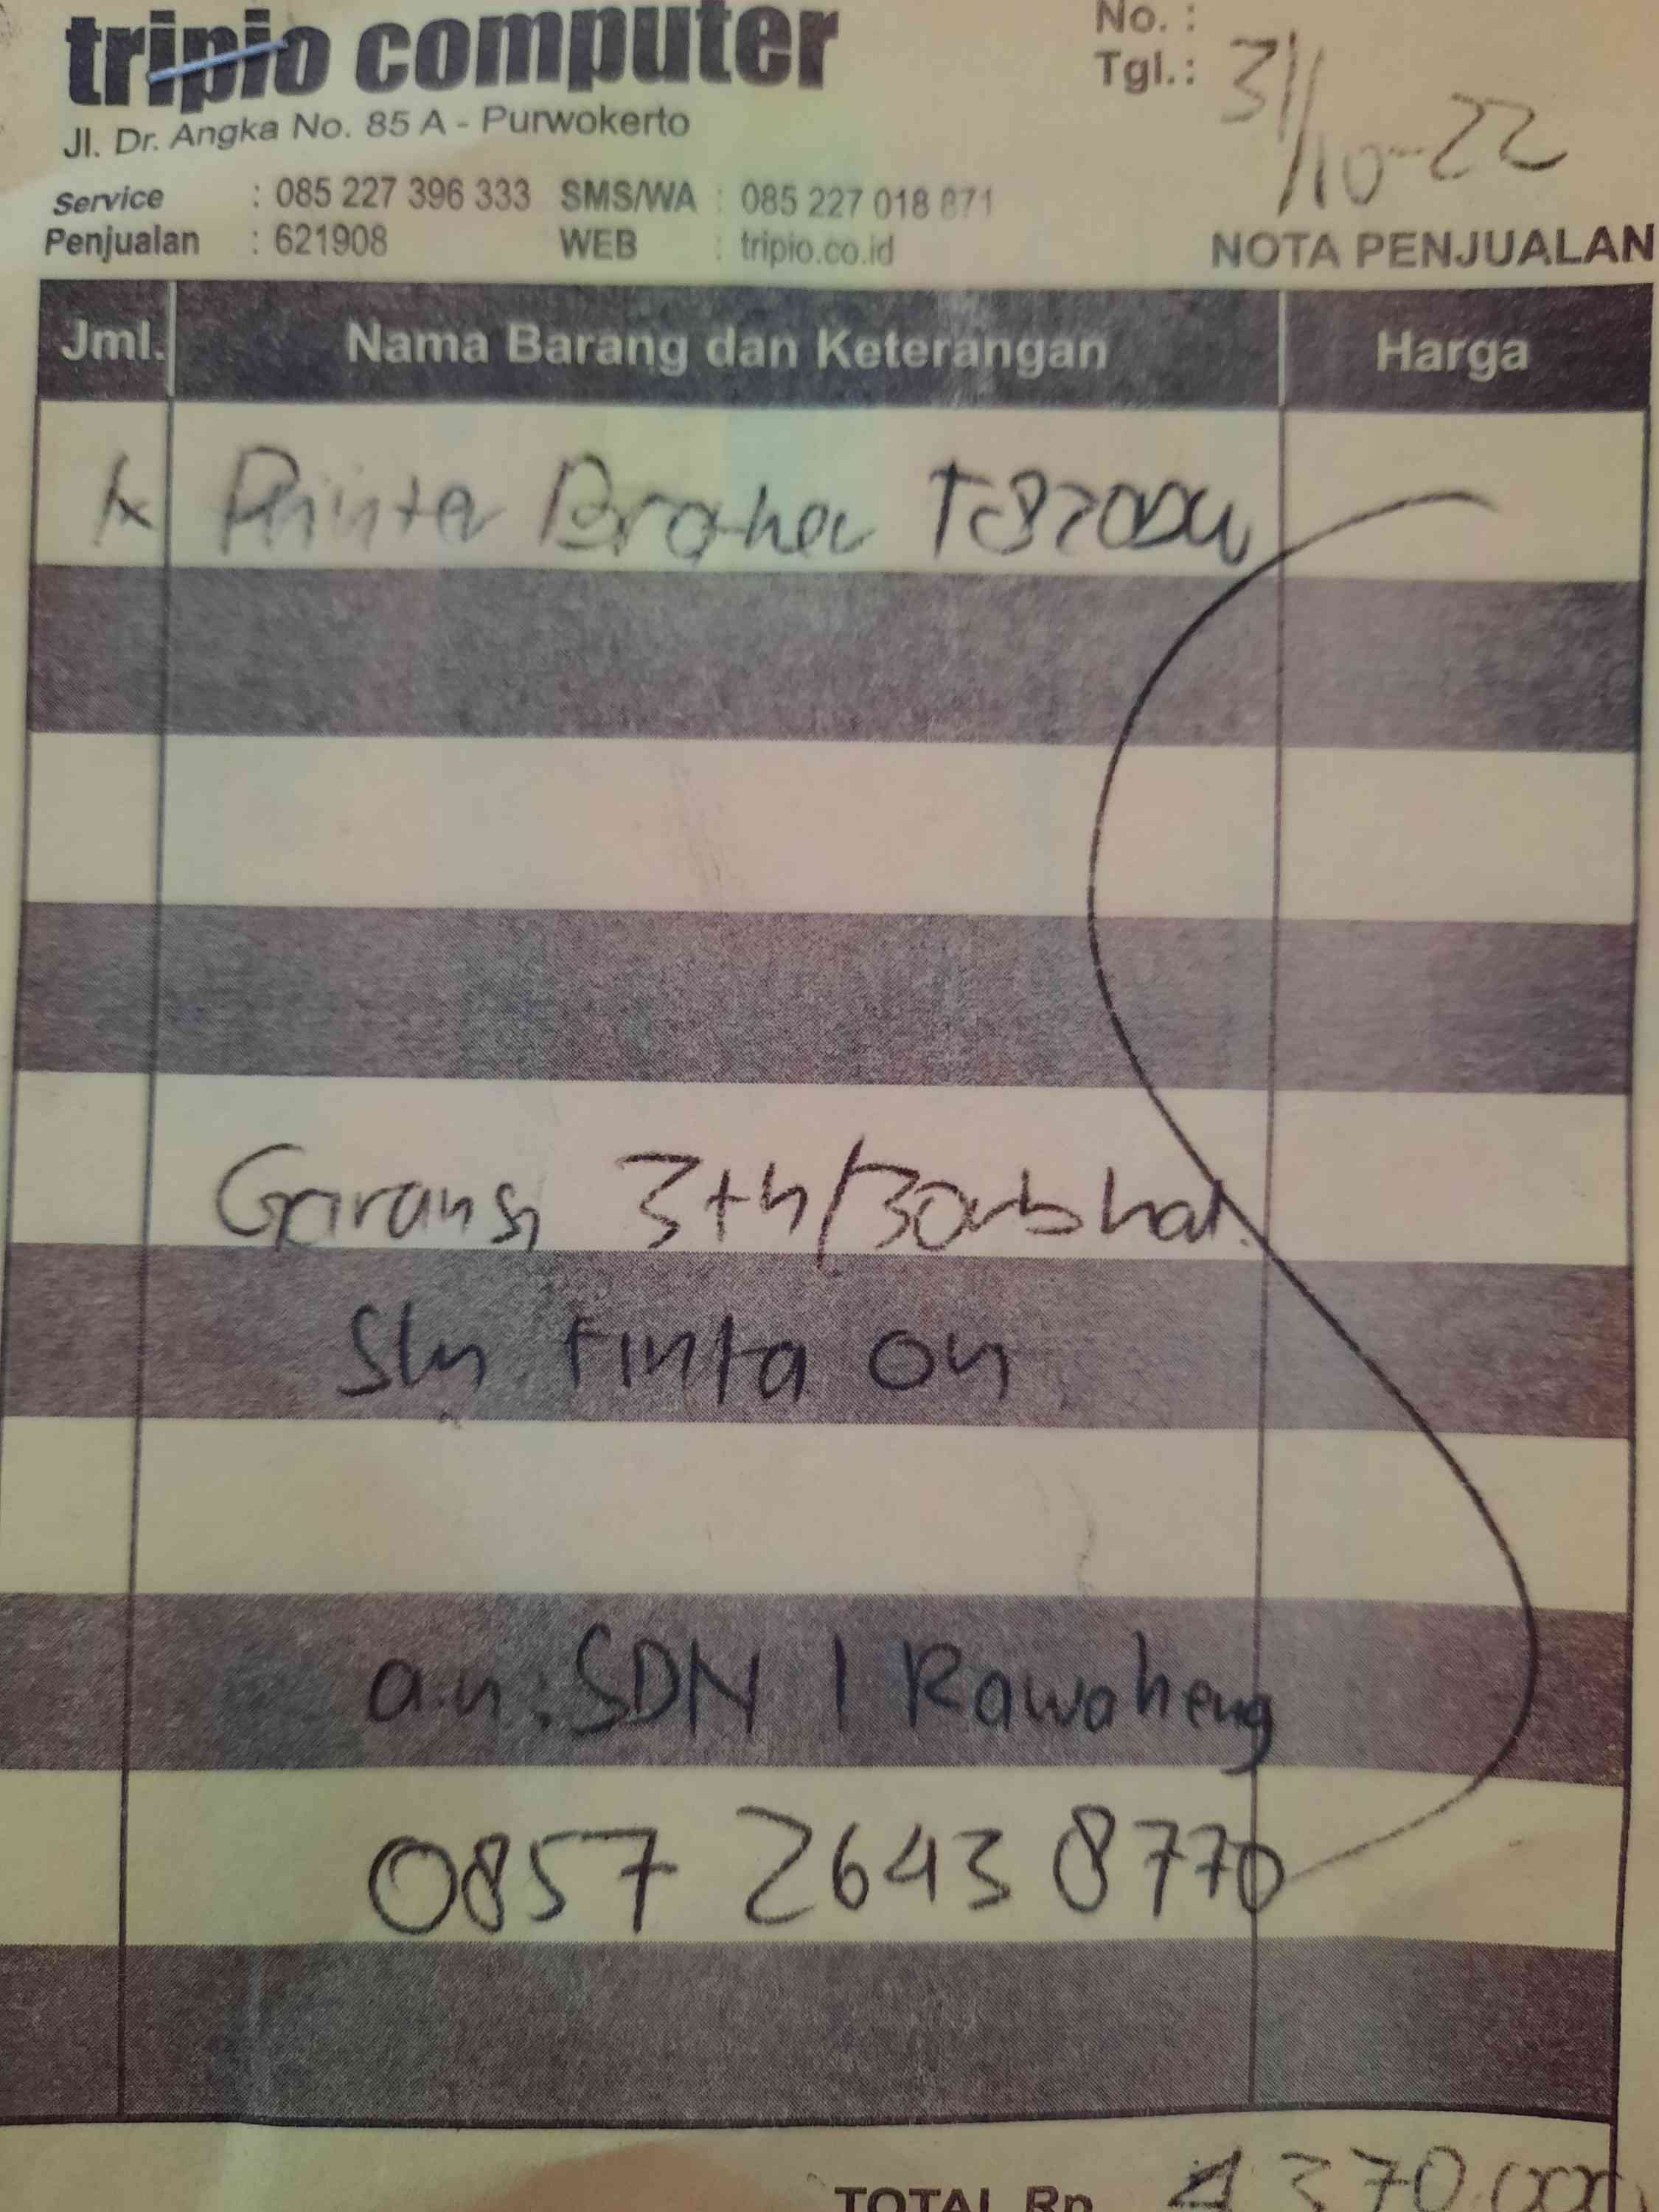 tripio computer
Jl. Dr. Angka No. 85 A - Purwokerto
Service : 085 227 396 333 SMS/WA : 085 227 018 871
Penjualan : 621908 WEB : tripio.co.id
No. :
Tgl. : 31/10-22
NOTA PENJUALAN
Jml. Nama Barang dan Keterangan Harga
1x Printer Brother T820DW
Garansi 3th/30rb hal.
Sln tinta ori
a.n: SDN 1 Rawaheng
0857 2643 8770
TOTAL Rp 4370.000